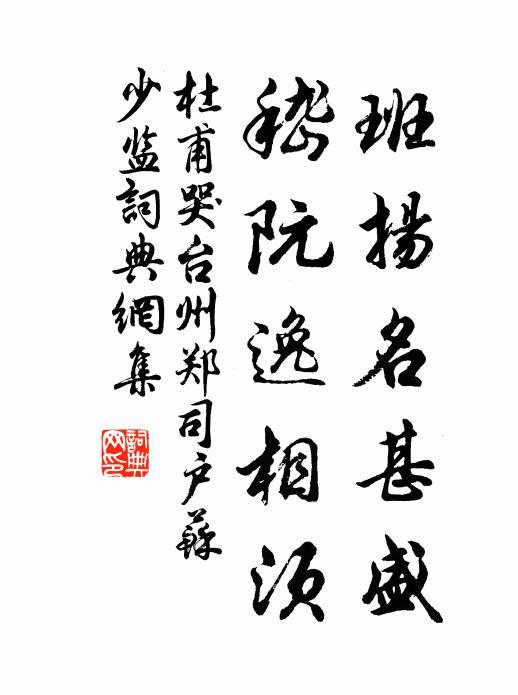 班揚名甚盛
嵇阮逸相須
杜甫哭台州郑司户蘇
少监詞典網集
詞典網印